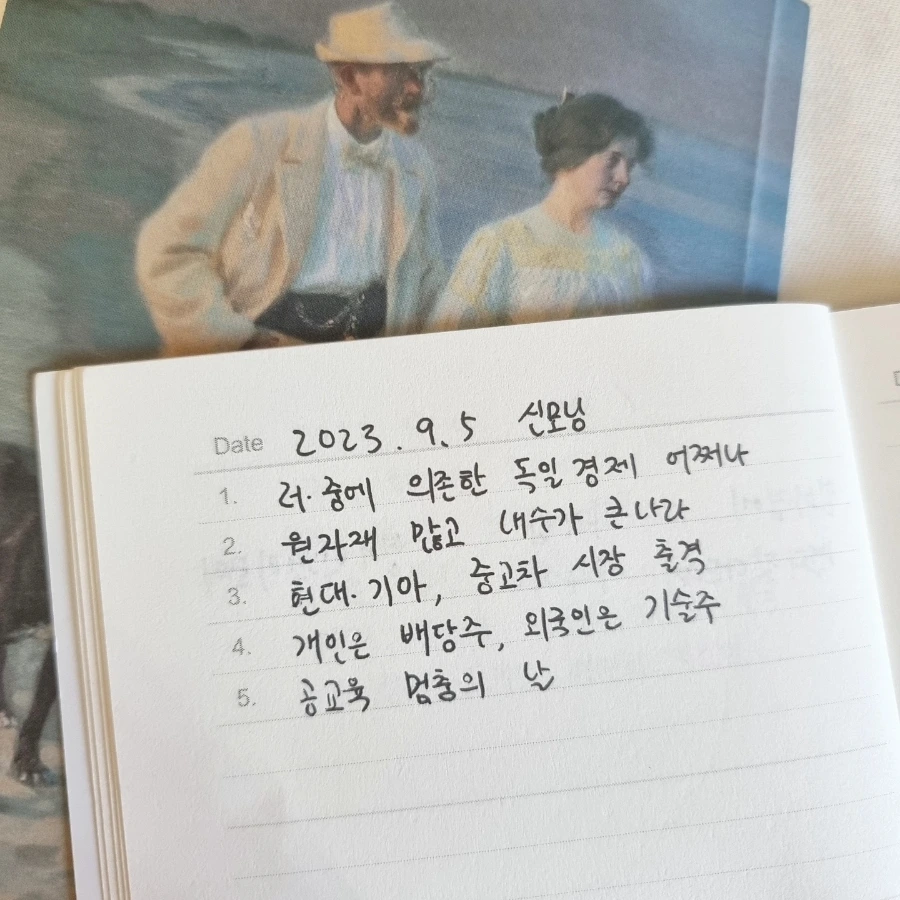 Date 2023.9.5 신모닝
1. 러·중에 의존한 독일 경제 어쩌나
2. 원자재 많고 내수가 큰나라
3. 현대·기아, 중고차 시장 출격
4. 개인은 배당주, 외국인은 기술주
5. 공교육 멈춤의 날